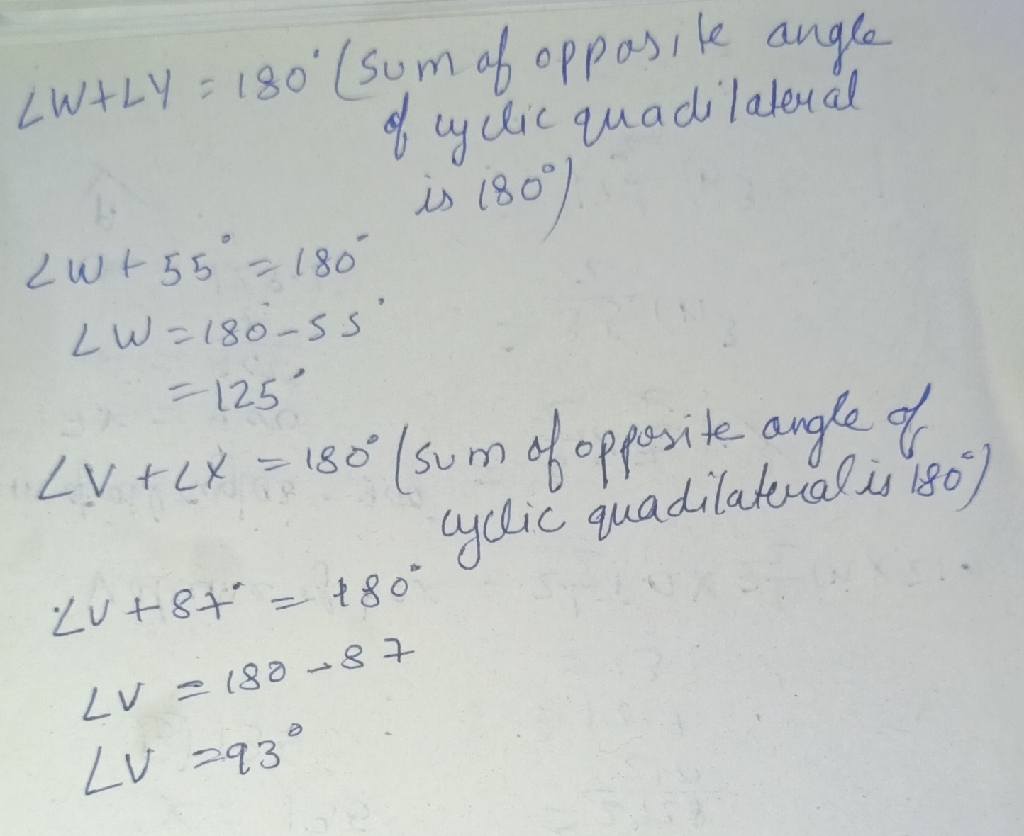 ∠W+∠Y = 180° (sum of opposite angle
of cyclic quadilateral
is 180°)
∠W + 55° = 180°
∠W = 180 - 55°
= 125°
∠V + ∠X = 180° (sum of opposite angle of
cyclic quadilateral is 180°)
∠V + 87° = 180°
∠V = 180 - 87
∠V = 93°